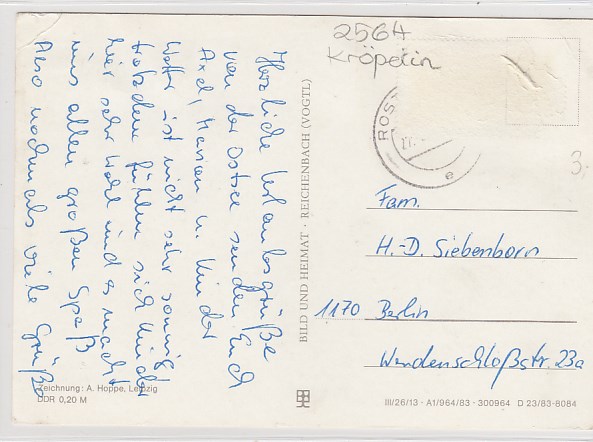 Herzliche Urlaubsgrüße
von der Ostsee senden Euch
Axel, Marion u. Kinder
Wetter ist nicht sehr sonnig
trotzdem fühlen sich Kinder
hier sehr wohl und es macht
uns allen großen Spaß
Also nochmals viele Grüße
Zeichnung: A. Hoppe, Leipzig
DDR 0,20 M
BILD UND HEIMAT · REICHENBACH (VOGTL)
2564
Kröpelin
ROS
e
3.-
Fam.
H.-D. Siebenborn
1170 Berlin
Wendenschloßstr. 23a
III/26/13 · A1/964/83 · 300964 D 23/83-8084